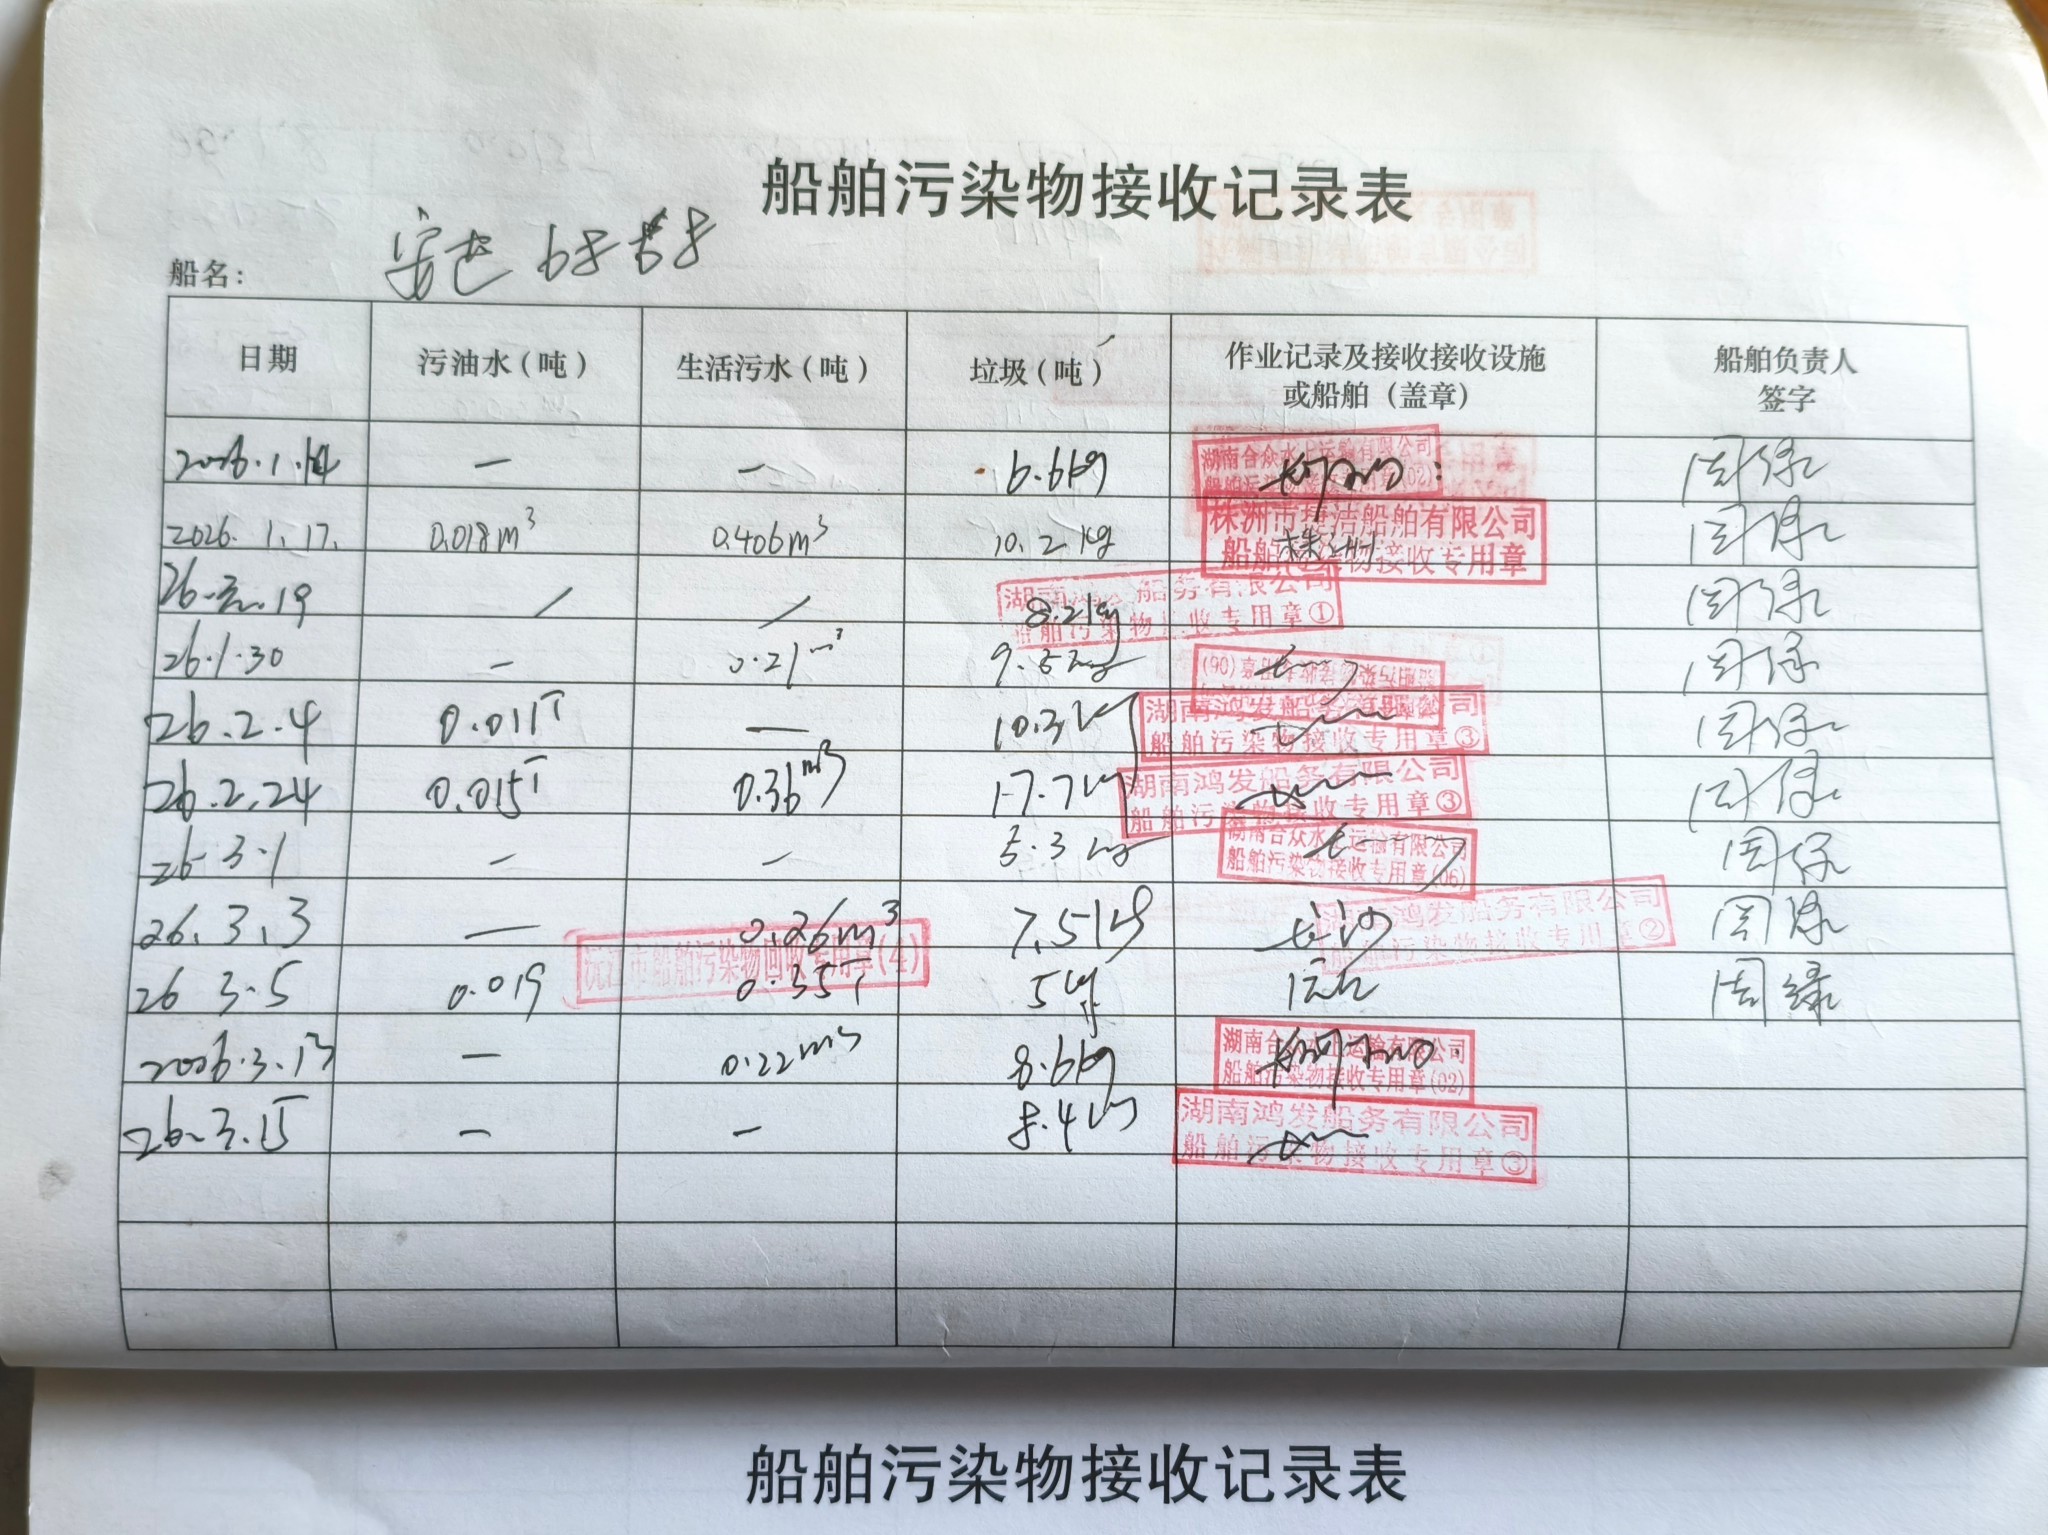 船舶污染物接收记录表
船名：
日期 污油水（吨） 生活污水（吨） 垃圾（吨） 作业记录及接收接收设施或船舶（盖章） 船舶负责人签字
2026.1.14 — — 6.6kg 湖南合众水上运输有限公司 船舶污染物接收专用章(02) 周绿
2026.1.17. 0.018m³ 0.406m³ 10.2kg 株洲市捷洁船舶有限公司 船舶污染物接收专用章 株洲 周绿
26.19 / / 8.2kg 湖南 船务有限公司 船舶污染物接收专用章① 周绿
26.1.30 — 0.21m³ 9.5kg 船舶污染物接收专用章(06) 周绿
26.2.4 0.011T — 10.3kg 湖南鸿发船务有限公司 船舶污染物接收专用章③ 周绿
26.2.24 0.015T 0.36m³ 17.7kg 湖南鸿发船务有限公司 船舶污染物接收专用章③ 周绿
26.3.1 — — 5.3kg 湖南合众水上运输有限公司 船舶污染物接收专用章(06) 周绿
26.3.3 — 0.26m³ 7.5kg 长沙 湖南鸿发船务有限公司 船舶污染物接收专用章② 周绿
26 3.5 0.019 0.35T 5kg 沅江市船舶污染物回收专用章(4) 沅江 周绿
2026.3.13 — 0.22m³ 8.6kg 湖南合众水上运输有限公司 船舶污染物接收专用章(02)
26.3.15 — — 8.4kg 湖南鸿发船务有限公司 船舶污染物接收专用章③
船舶污染物接收记录表